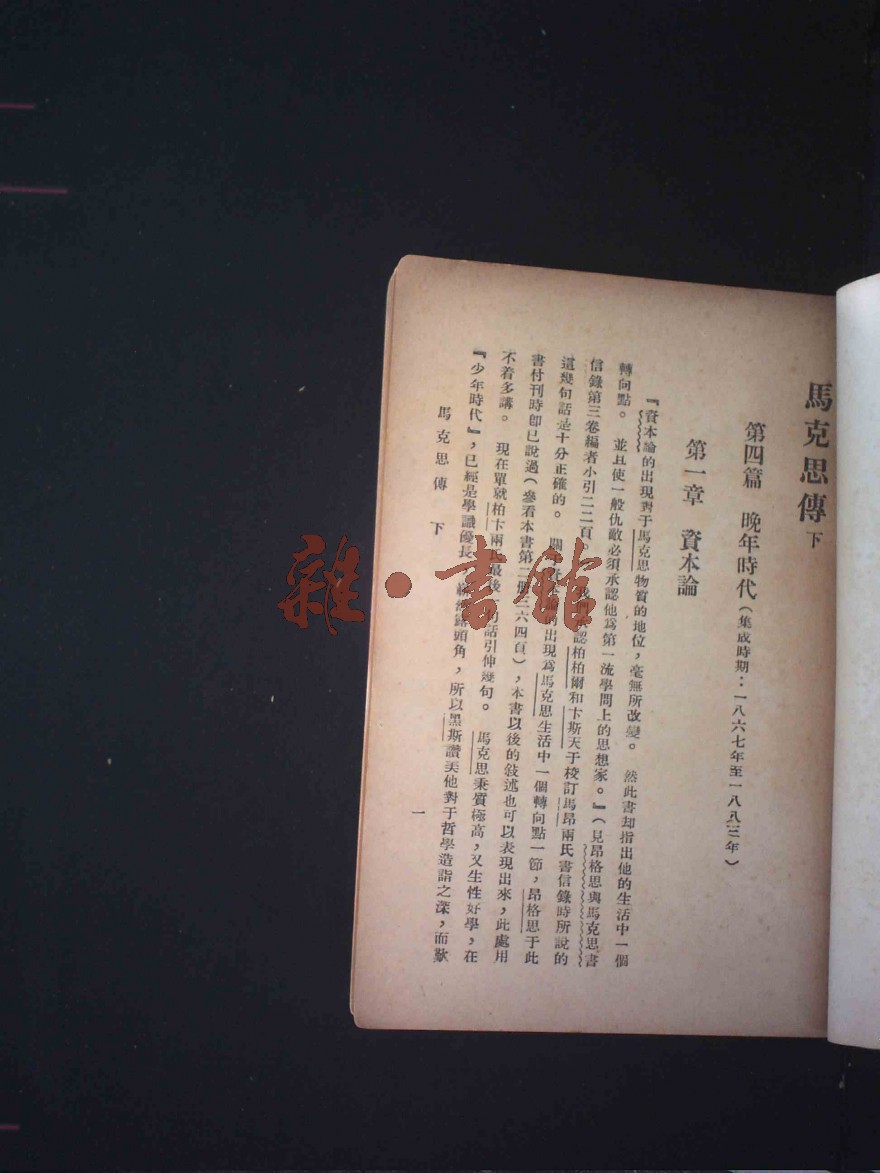 馬克思傳 下
第四篇 晚年時代(集成時期:一八六七年至一八八三年)
第一章 資本論
『資本論的出現對于馬克思物質的地位,毫無所改變。 然此書却指出他的生活中一個
轉向點。 並且使一般仇敵必須承認他爲第一流學問上的思想家。』(見昂格思與馬克思書
信錄第三卷編者小引二二頁 我們承認柏柏爾和卞斯天于校訂馬昂兩氏書信錄時所說的
這幾句話是十分正確的。 關于資本論的出現爲馬克思生活中一個轉向點一節,昂格思于此
書付刊時卽已說過(參看本書第二册三六四頁),本書以後的敍述也可以表現出來,此處用
不着多講。 現在單就柏卞兩氏最後一句話引伸幾句。 馬克思秉質極高,又生性好學,在
『少年時代』,已經是學識優長 嶄然露頭角,所以黑斯讚美他對于哲學造詣之深,而歎
馬克思傳 下
一
雜·書館